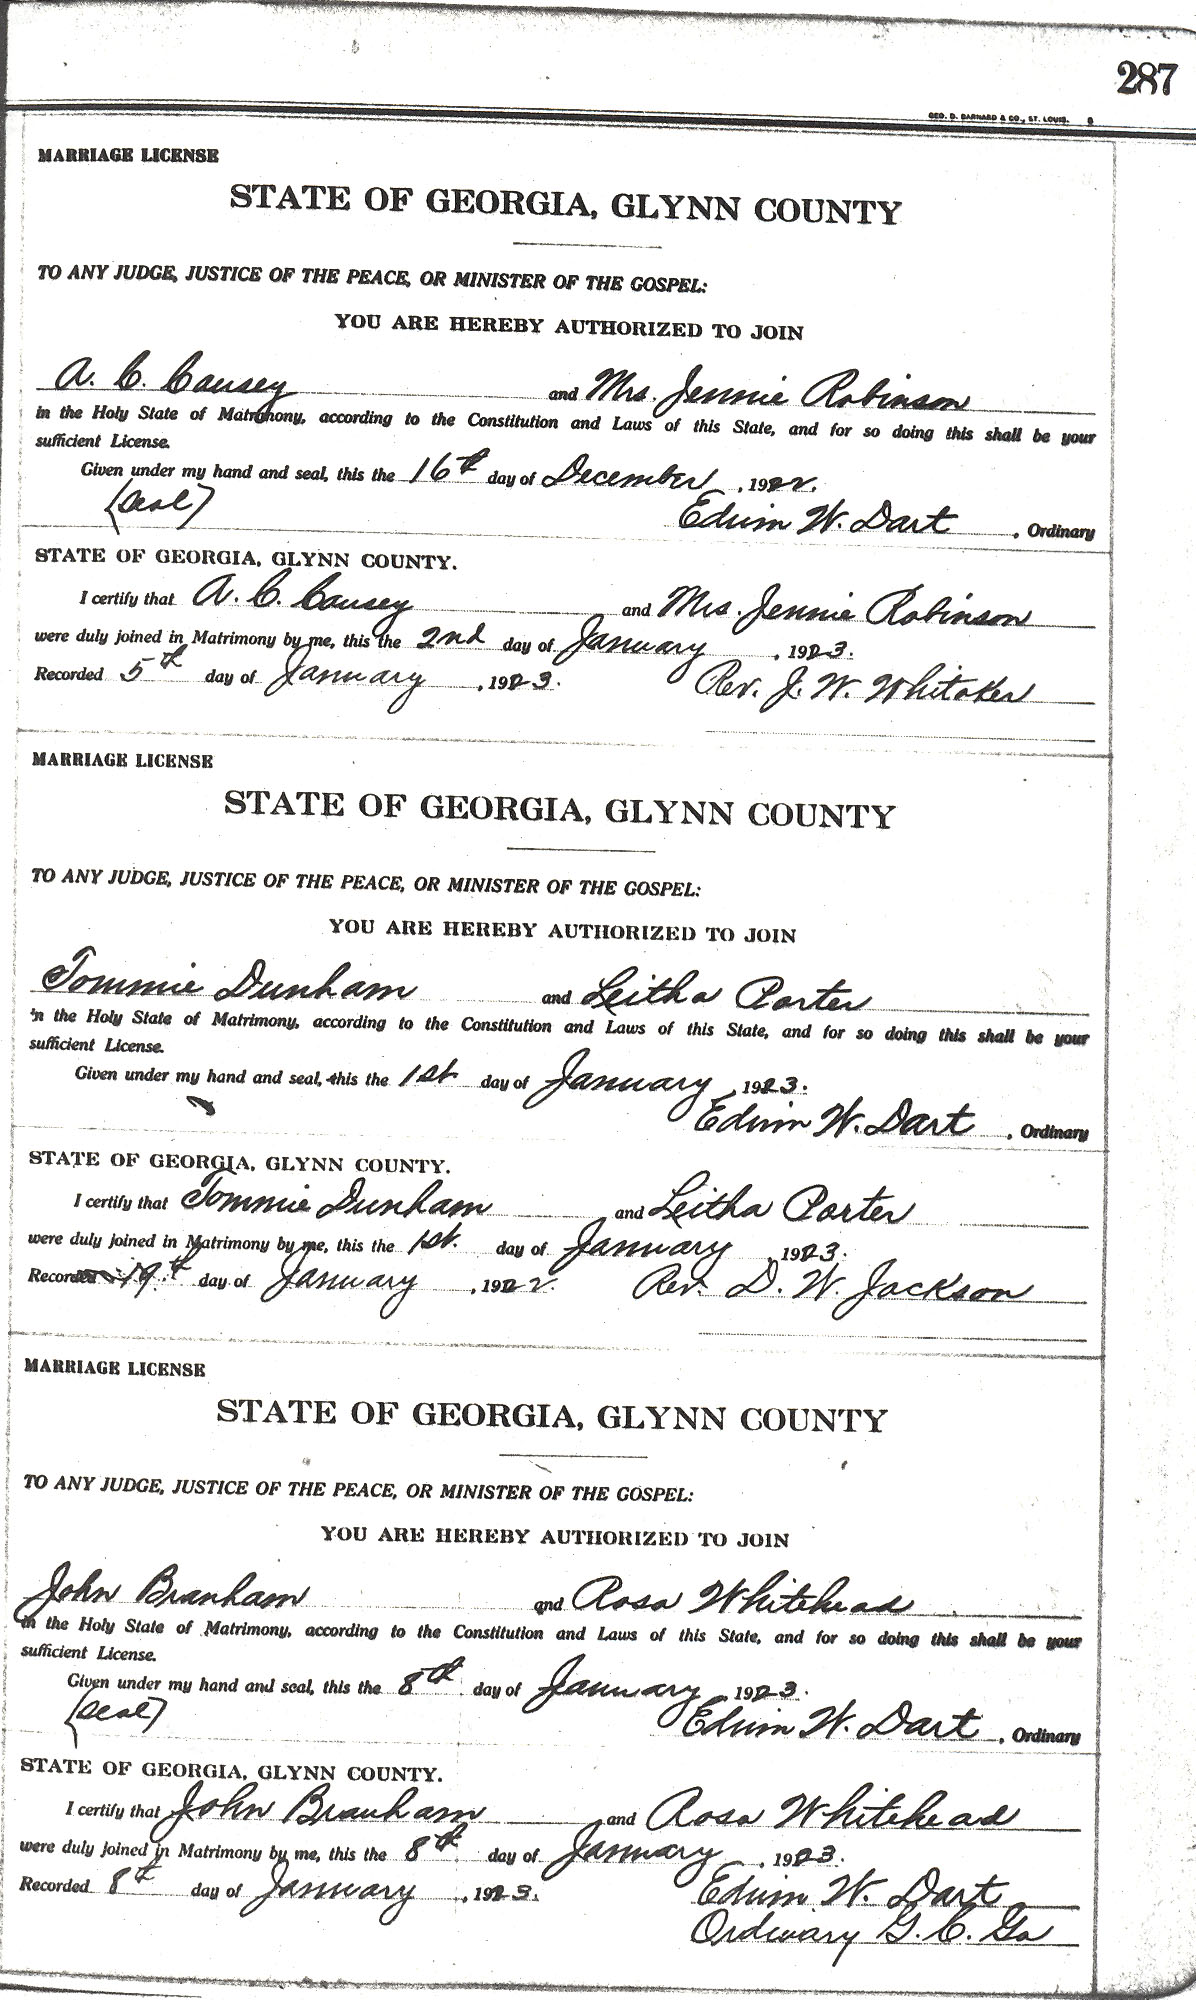 287
GEO. D. BARNARD & CO., ST. LOUIS. S
MARRIAGE LICENSE
STATE OF GEORGIA, GLYNN COUNTY
TO ANY JUDGE, JUSTICE OF THE PEACE, OR MINISTER OF THE GOSPEL:
YOU ARE HEREBY AUTHORIZED TO JOIN
A. C. Causey and Mrs. Jennie Robinson
in the Holy State of Matrimony, according to the Constitution and Laws of this State, and for so doing this shall be your
sufficient License.
Given under my hand and seal, this the 16th day of December, 1922.
(Seal)
Edwin W. Dart, Ordinary
STATE OF GEORGIA, GLYNN COUNTY.
I certify that A. C. Causey and Mrs. Jennie Robinson
were duly joined in Matrimony by me, this the 2nd day of January, 1923.
Recorded 5th day of January, 1923. Rev. J. W. Whitaker
MARRIAGE LICENSE
STATE OF GEORGIA, GLYNN COUNTY
TO ANY JUDGE, JUSTICE OF THE PEACE, OR MINISTER OF THE GOSPEL:
YOU ARE HEREBY AUTHORIZED TO JOIN
Tommie Dunham and Leitha Porter
in the Holy State of Matrimony, according to the Constitution and Laws of this State, and for so doing this shall be your
sufficient License.
Given under my hand and seal, this the 1st day of January, 1923.
Edwin W. Dart, Ordinary
STATE OF GEORGIA, GLYNN COUNTY.
I certify that Tommie Dunham and Leitha Porter
were duly joined in Matrimony by me, this the 1st. day of January, 1923.
Recorded 19th day of January, 1922. Rev. D. W. Jackson
MARRIAGE LICENSE
STATE OF GEORGIA, GLYNN COUNTY
TO ANY JUDGE, JUSTICE OF THE PEACE, OR MINISTER OF THE GOSPEL:
YOU ARE HEREBY AUTHORIZED TO JOIN
John Branham and Rosa Whitehead
in the Holy State of Matrimony, according to the Constitution and Laws of this State, and for so doing this shall be your
sufficient License.
Given under my hand and seal, this the 8th day of January, 1923.
(Seal)
Edwin W. Dart, Ordinary
STATE OF GEORGIA, GLYNN COUNTY.
I certify that John Branham and Rosa Whitehead
were duly joined in Matrimony by me, this the 8th day of January, 1923.
Recorded 8th day of January, 1923. Edwin W. Dart
Ordinary G. C. Ga